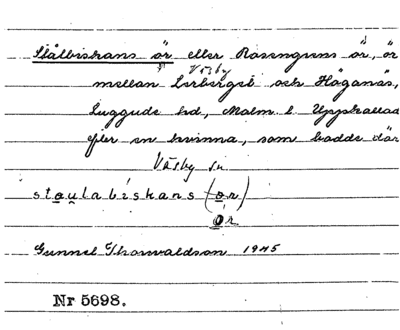 Stålbiskans ör eller Rosengrens ör, ör
Väsby
mellan Lerberget och Höganäs,
Luggude hd, Malm. l. Uppkallad
efter en kvinna, som bodde där
Väsby sn
staulabiskans (or)
ór
Gunnel Thorvaldson 1945
Nr 5698.